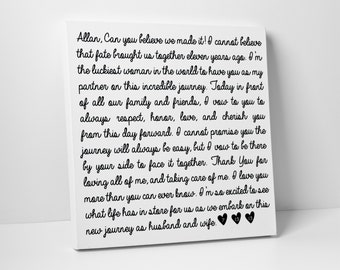 Allan, Can you believe we made it! I cannot believe
that fate brought us together eleven years ago. I'm
the luckiest woman in the world to have you as my
partner on this incredible journey. Today in front
of all our family and friends, I vow to you to
always respect, honor, love, and cherish you
from this day forward. I cannot promise you the
journey will always be easy, but I vow to be there
by your side to face it together. Thank You for
loving all of me, and taking care of me. I love you
more than you can ever know. I'm so excited to see
what life has in store for us as we embark on this
new journey as husband and wife.